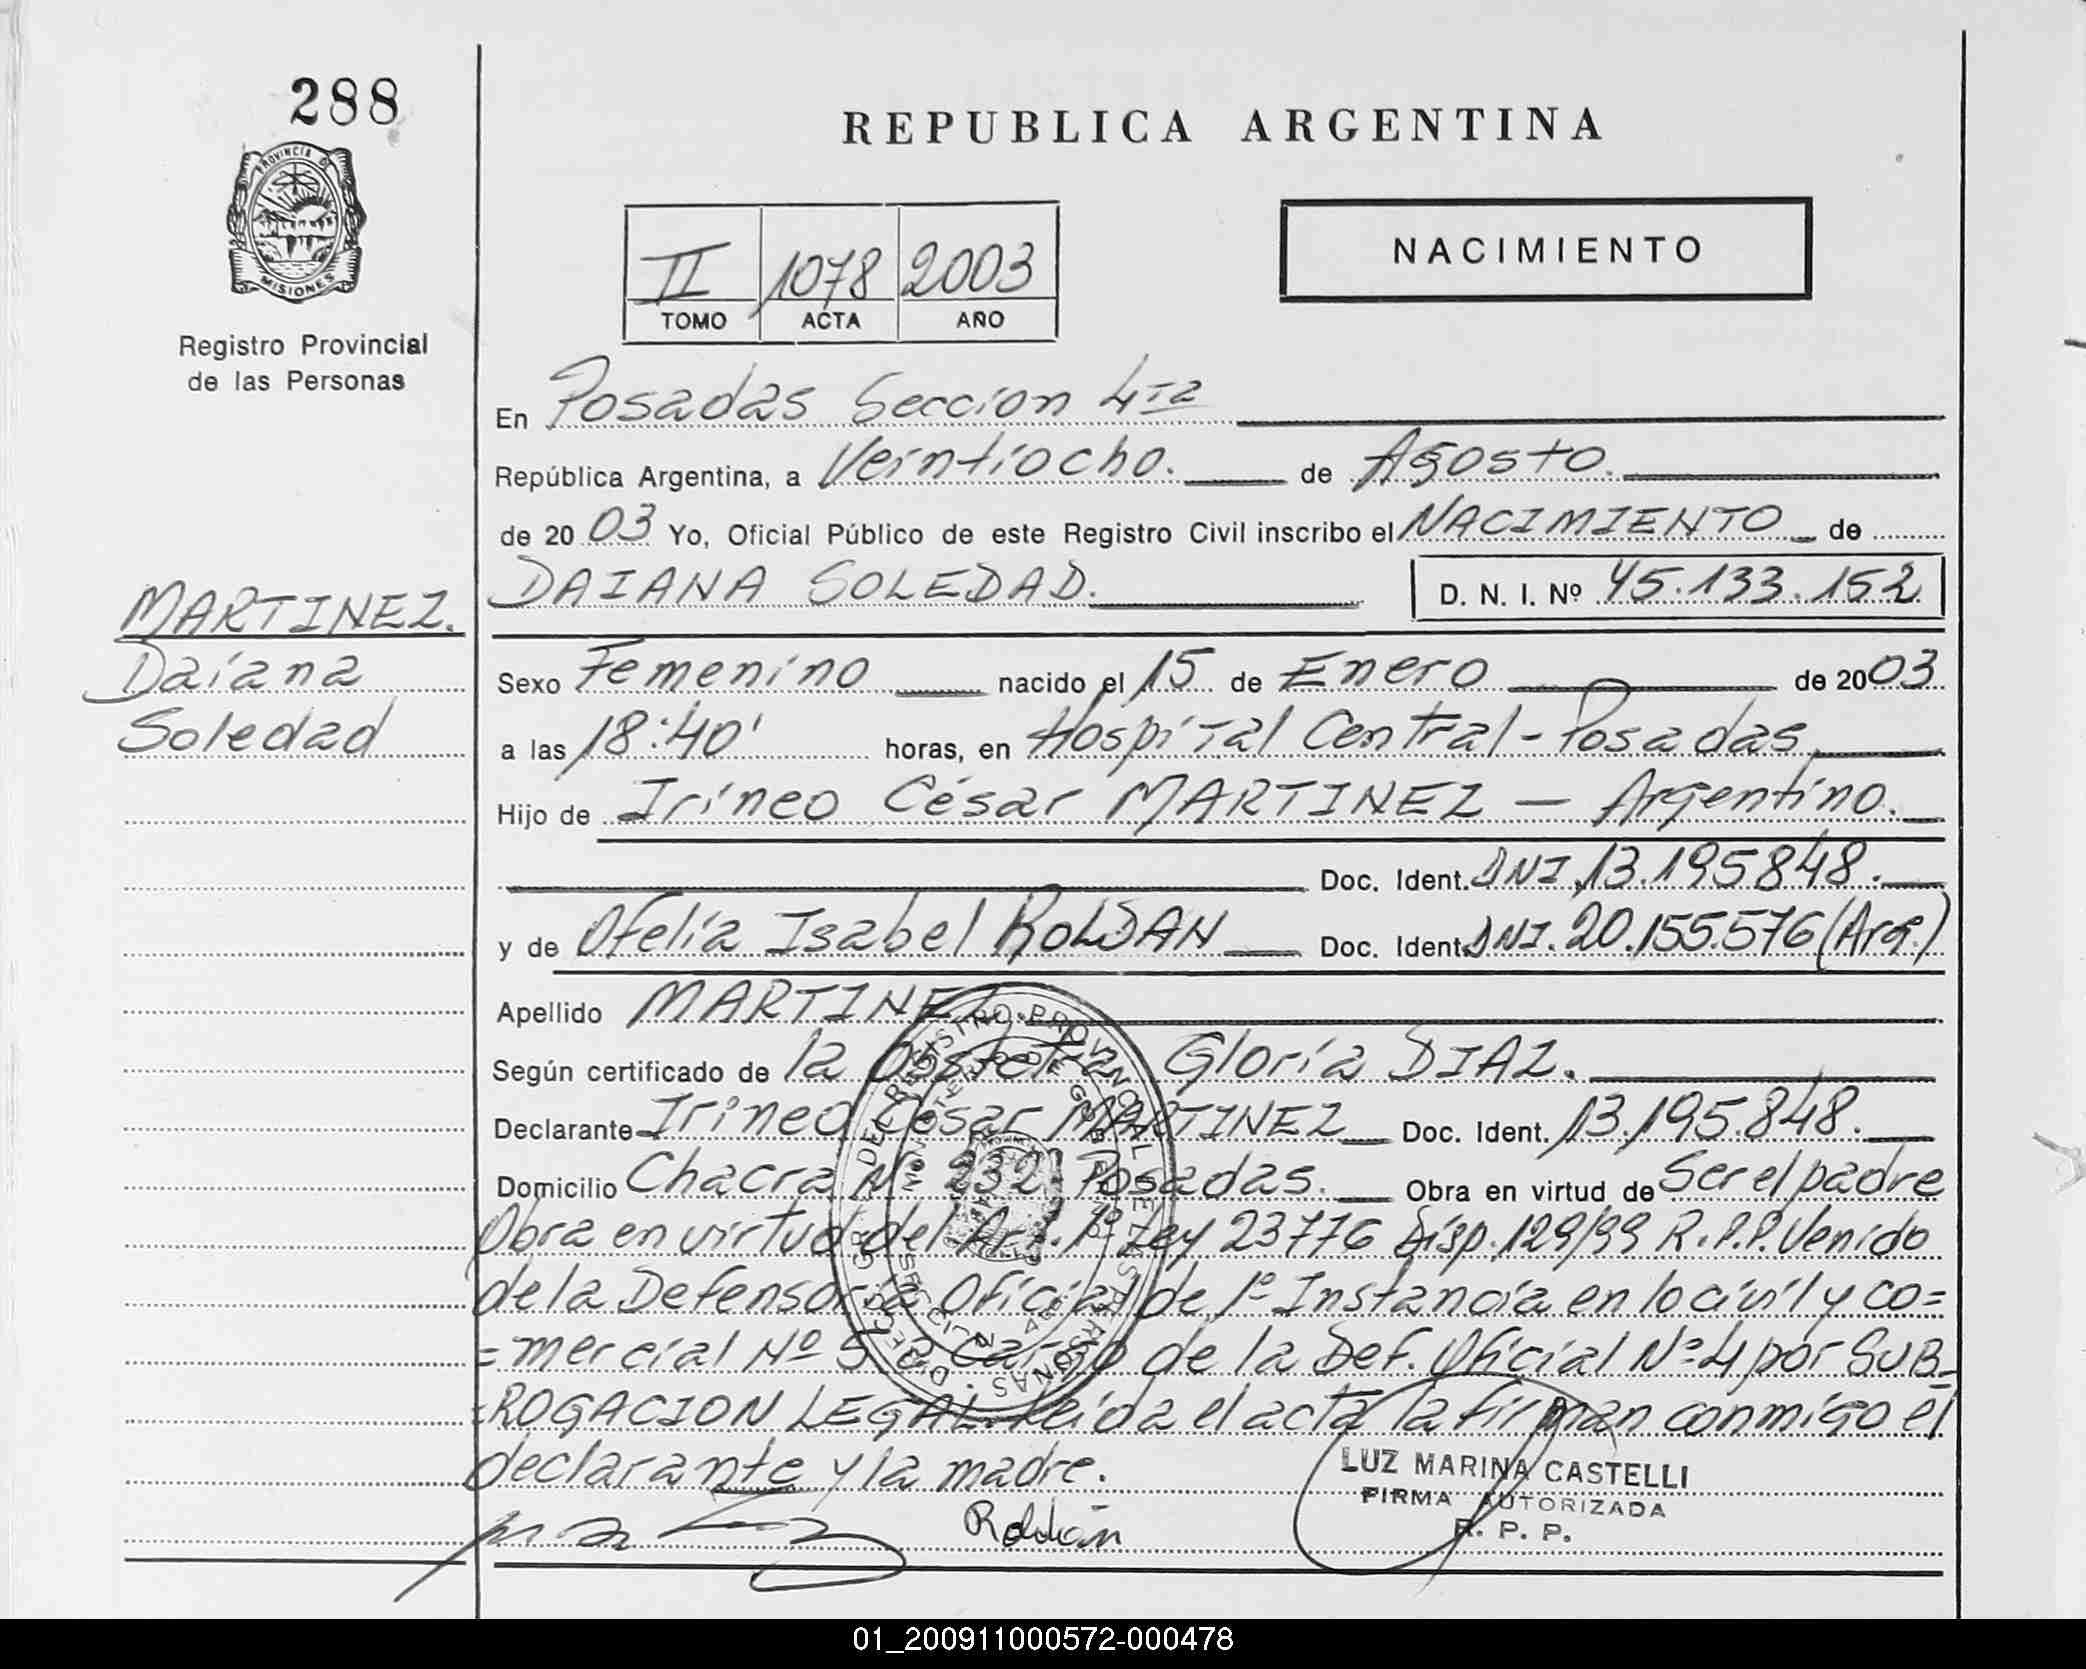 288
PROVINCIA D
MISIONES
Registro Provincial
de las Personas
MARTINEZ.
Daiana
Soledad
REPUBLICA ARGENTINA
II 1078 2003
TOMO ACTA AÑO
NACIMIENTO
En Posadas Seccion 4ta
República Argentina, a Veintiocho. de Agosto.
de 20 03 Yo, Oficial Público de este Registro Civil inscribo el NACIMIENTO de
DAIANA SOLEDAD. D. N. I. Nº 45.133.152
Sexo Femenino nacido el 15 de Enero de 20 03
a las 18:40' horas, en Hospital Central - Posadas
Hijo de Irineo César MARTINEZ — Argentino.
Doc. Ident. DNI 13.195848.
y de Ofelia Isabel ROLDAN Doc. Ident. DNI. 20.155.576 (Arg.)
Apellido MARTINEZ
Según certificado de la Obstetra Gloria DIAZ.
Declarante Irineo César MARTINEZ Doc. Ident. 13.195.848.
Domicilio Chacra Nº 232 Posadas. Obra en virtud de Ser el padre
Obra en virtud del Art. 1º Ley 23776 Disp. 129/99 R.P.P. Venido
de la Defensoría Oficial de 1º Instancia en lo civil y co=
=mercial Nº 5 a cargo de la Def. Oficial Nº 4 por SUB=
=ROGACION LEGAL. Leída el acta la firman conmigo el
declarante y la madre.
Roldán
LUZ MARINA CASTELLI
FIRMA AUTORIZADA
R. P. P.
01_200911000572-000478